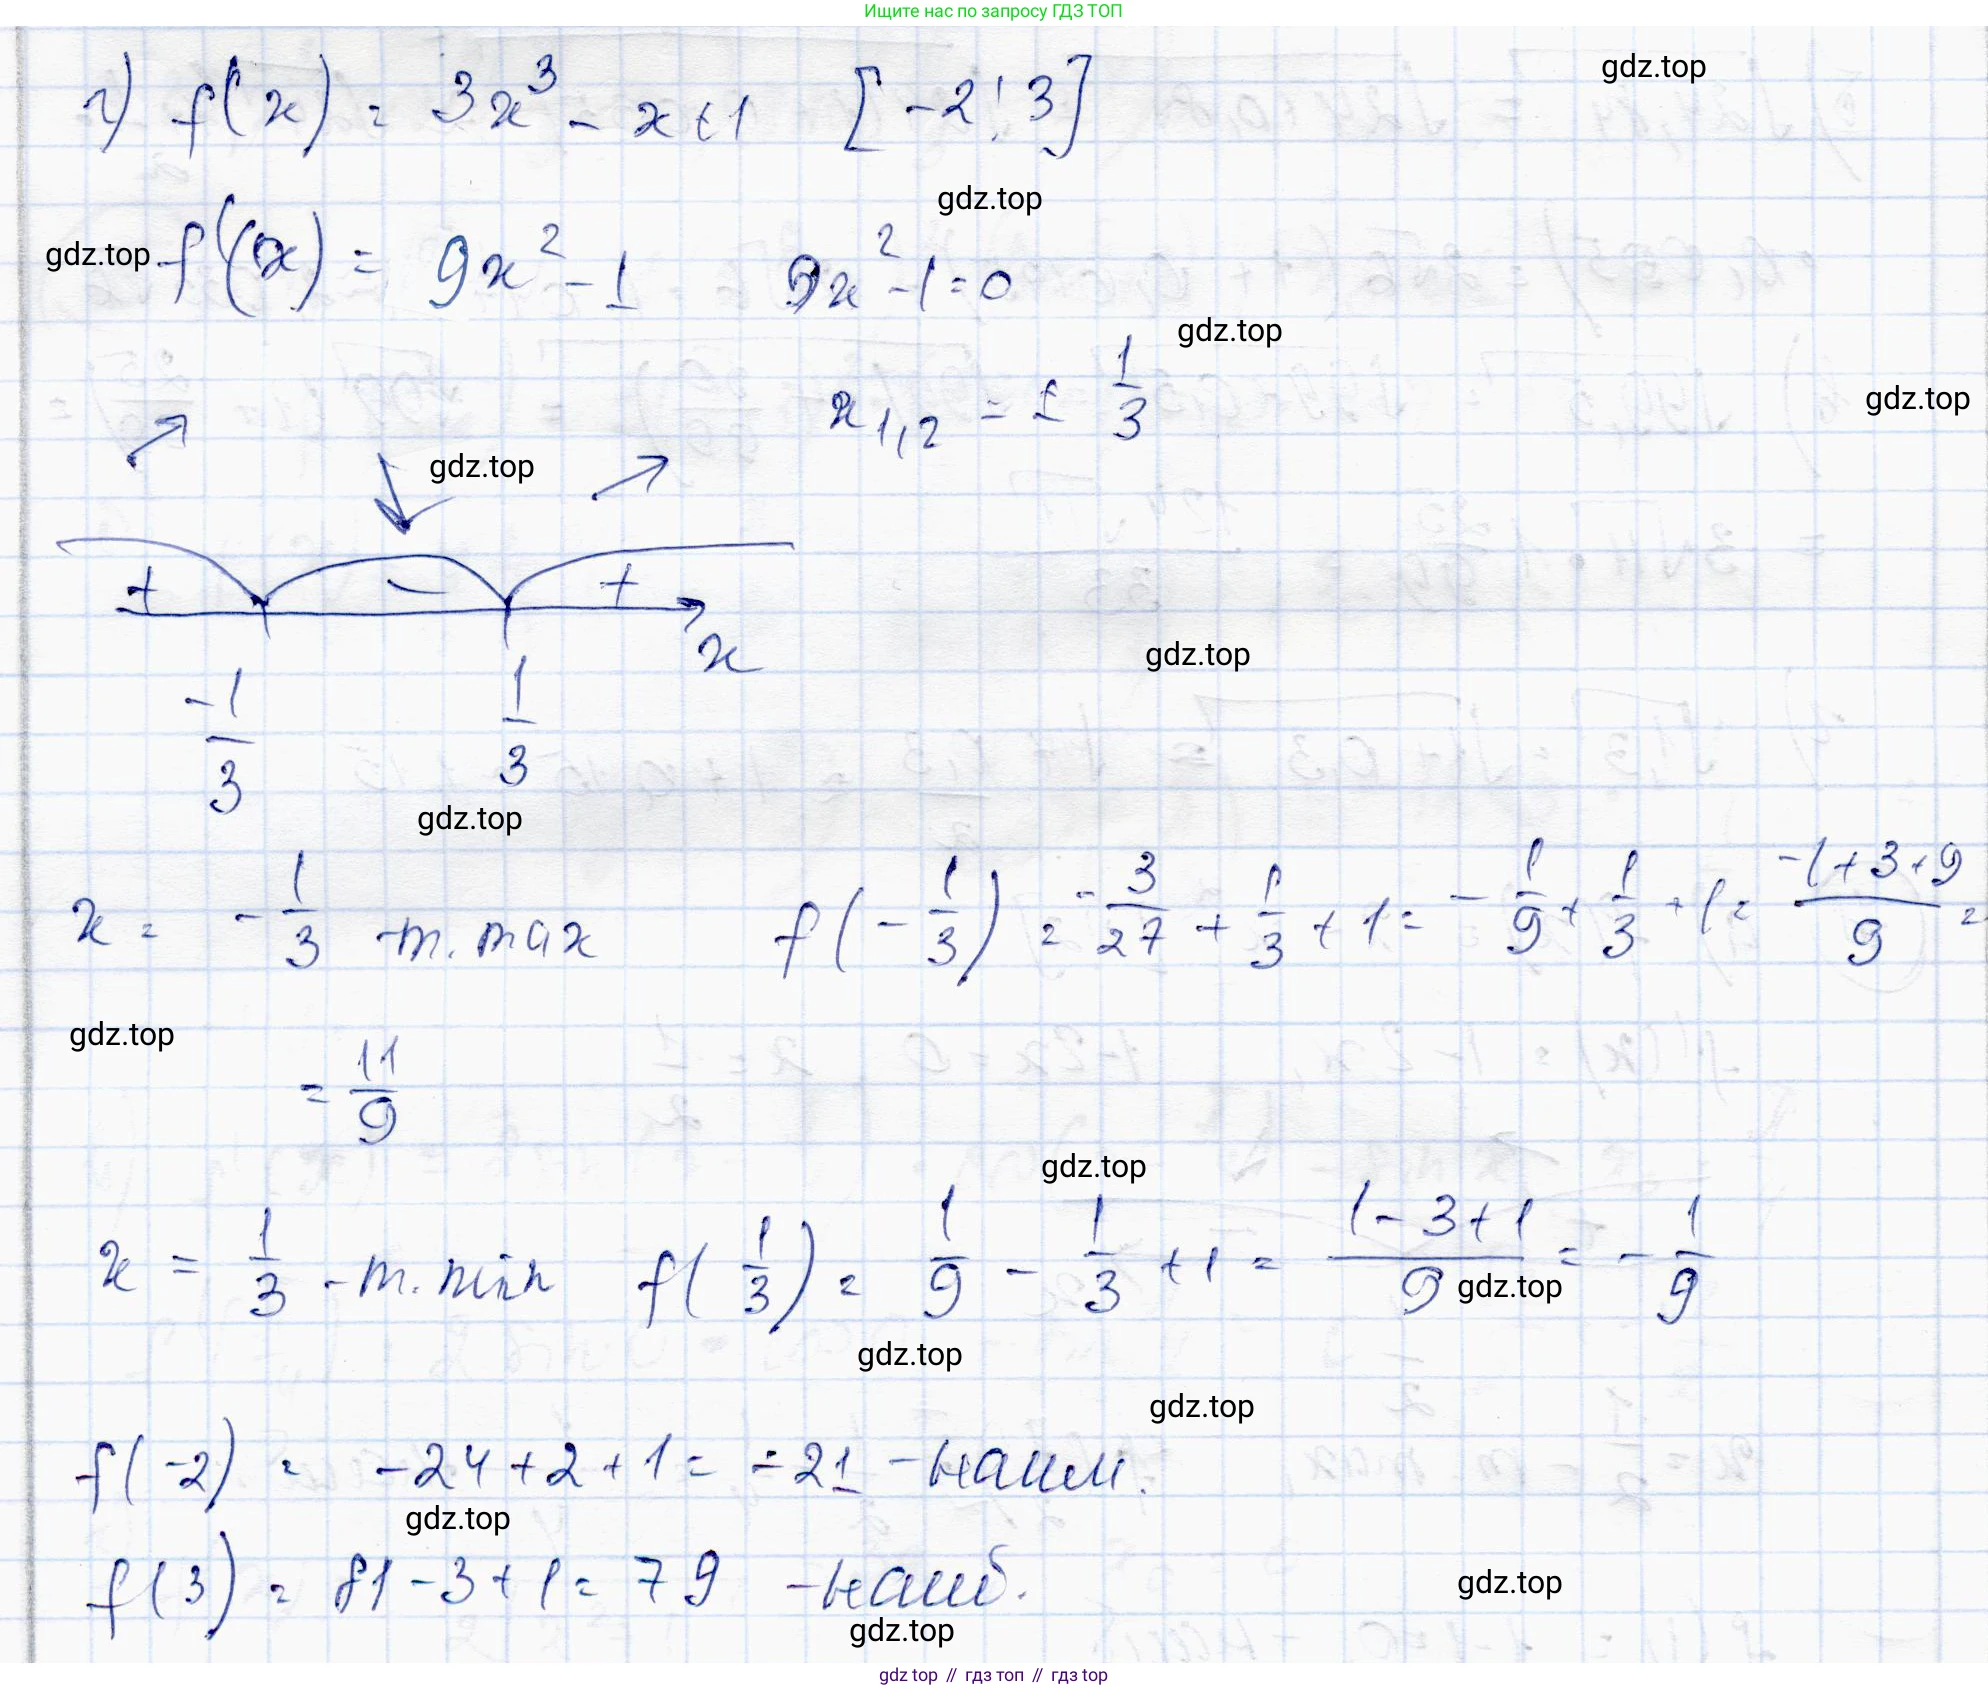 Ищите нас по запросу ГДЗ ТОП
г) f(x) = 3x³ - x + 1 [-2; 3]
gdz.top
gdz.top
gdz.top f'(x) = 9x² - 1 9x² - 1 = 0
gdz.top
x₁,₂ = ± 1/3
gdz.top
gdz.top
+ - + x
gdz.top
-1/3 1/3
gdz.top
x = -1/3 - т. max f(-1/3) = -3/27 + 1/3 + 1 = -1/9 + 1/3 + 1 = (-1+3+9)/9 =
gdz.top
= 11/9
gdz.top
x = 1/3 - т. min f(1/3) = 1/9 - 1/3 + 1 = (1-3+1)/9 = -1/9
gdz.top
gdz.top
gdz.top
f(-2) = -24 + 2 + 1 = -21 - наим.
gdz.top
f(3) = 81 - 3 + 1 = 79 - наиб.
gdz.top
gdz.top
gdz top // гдз топ // gdz top